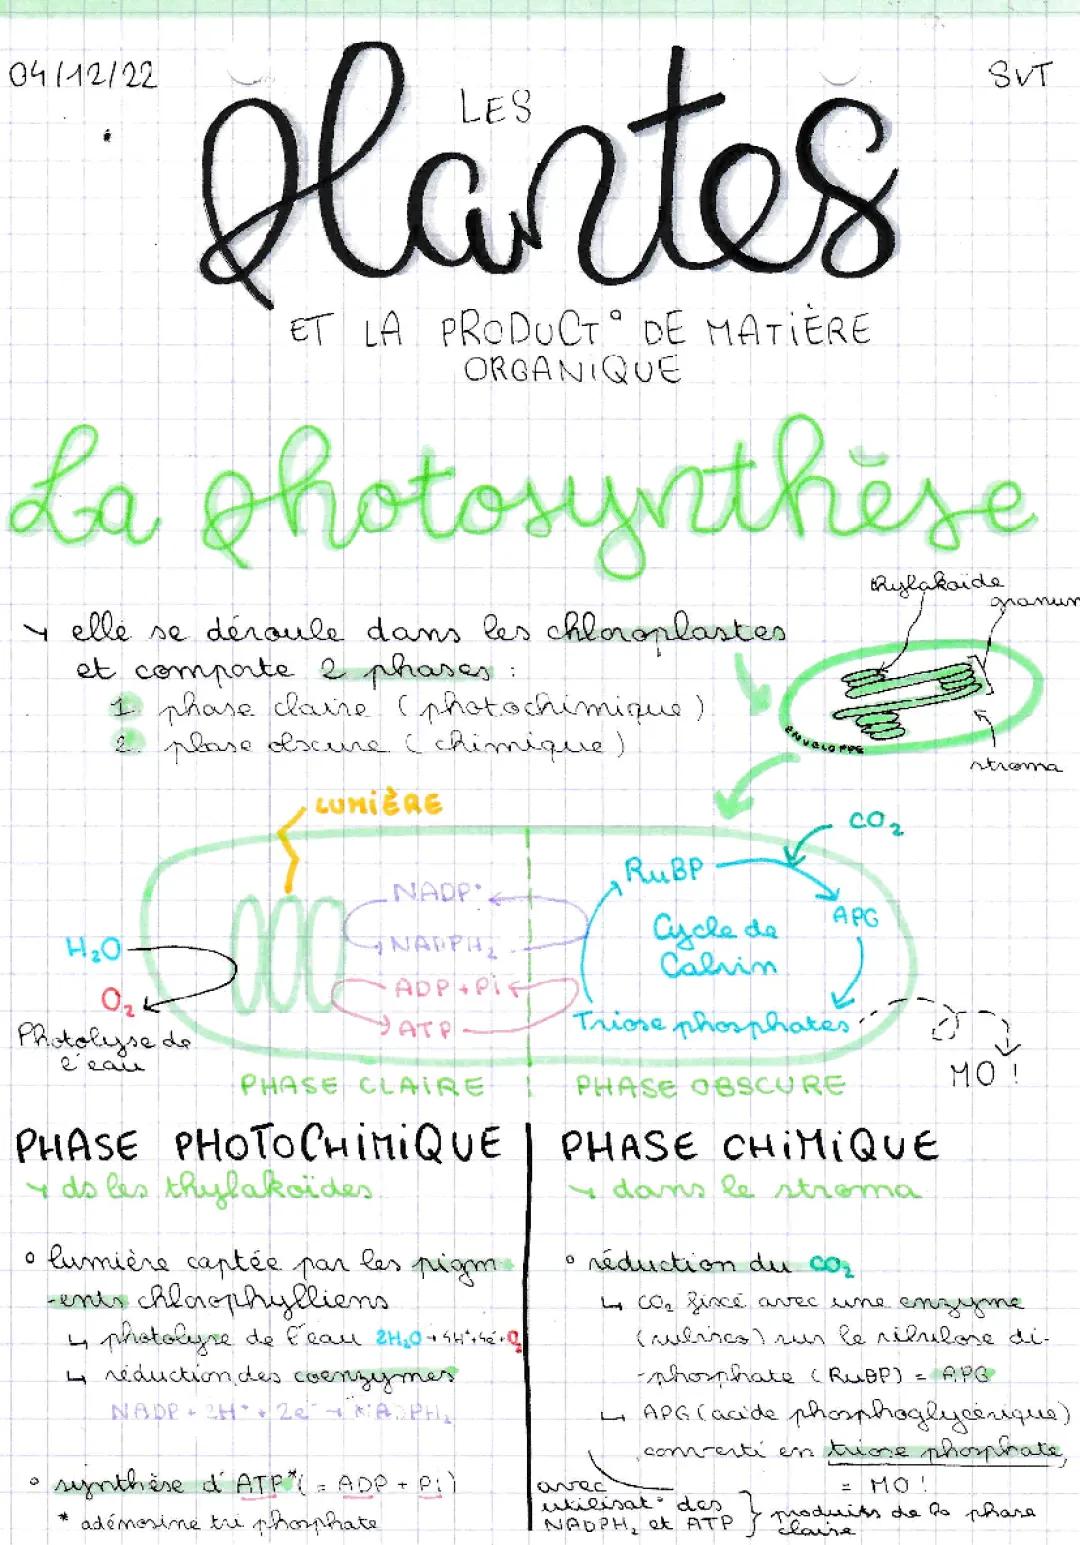 04/12/22
SVT
LES
Plantes
ET LA PRODUCT° DE MATIÈRE
ORGANIQUE
La photosynthèse
thylakoïde
granum
elle se déroule dans les chloroplastes
et comporte 2 phases :
1. phase claire (photochimique)
2. phase obscure (chimique)
ENVELOPPE
stroma
LUMIÈRE
CO₂
RuBP
NADP⁺
APG
H₂O
NADPH₂
Cycle de
Calvin
O₂
ADP + Pi
ATP
Triose phosphates
Photolyse de
l'eau
MO !
PHASE CLAIRE
PHASE OBSCURE
PHASE PHOTOCHIMIQUE
ds les thylakoïdes
° lumière captée par les pigm
-ents chlorophylliens
↳ photolyse de l'eau 2H₂O → 4H⁺+4e⁻+O₂
↳ réduction des coenzymes
NADP + 2H⁺ + 2e⁻ → NADPH₂
° synthèse d'ATP* (= ADP + Pi)
* adénosine tri phosphate
PHASE CHIMIQUE
dans le stroma
° réduction du CO₂
↳ CO₂ fixé avec une enzyme
(rubisco) sur le ribulose di-
-phosphate (RuBP) = APG
↳ APG (acide phosphoglycérique)
converti en triose phosphate,
= MO !
avec
utilisat° des
NADPH₂ et ATP } produits de la phase
claire